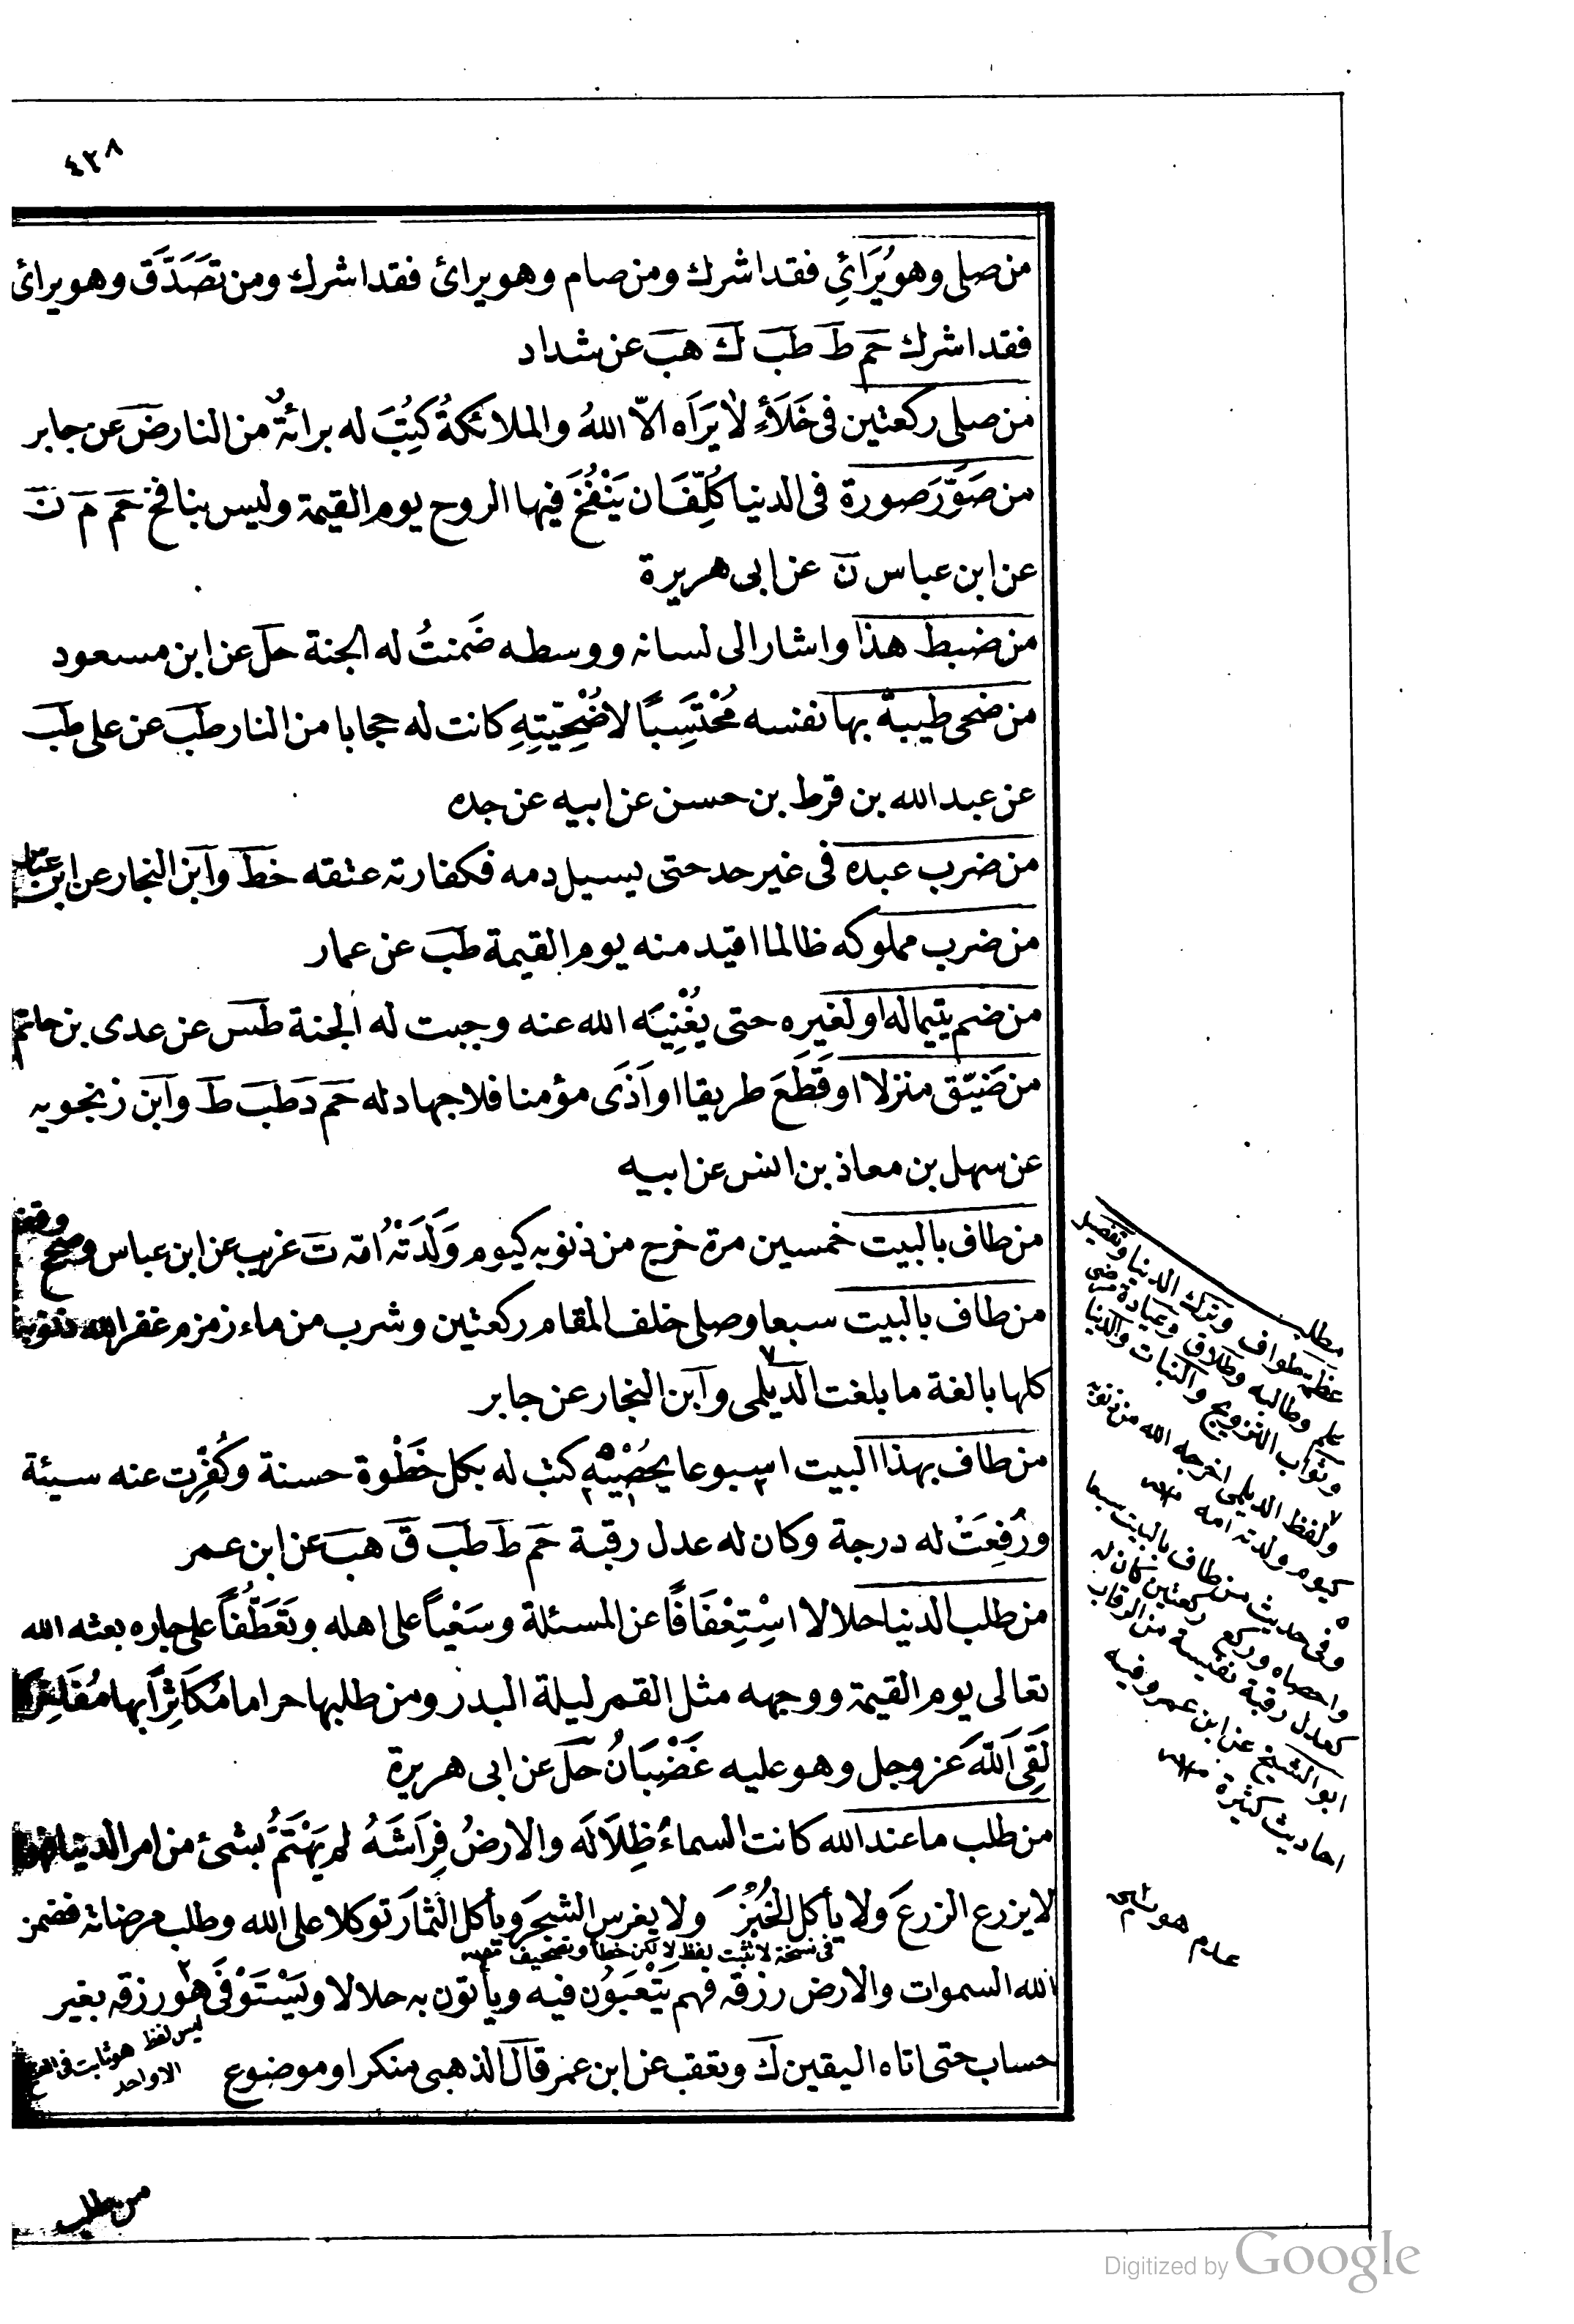 ٤٢٨
من صلى وهو يُرَائِي فقد اشرك ومن صام وهو يرائ فقد اشرك ومن تَصَدَّقَ وهو يرائ
فقد اشرك حم ط طب ك هب عن شداد
من صلى ركعتين فى خَلَأءٍ لا يَرَاه الّا اللهُ والملائكةُ كُتِبَ له برائةٌ من النار ض عن جابر
من صَوَّرَ صورة فى الدنيا كُلِّفَ ان يَنْفُخَ فيها الروح يوم القيمة وليس بنافخ حم م ن
عن ابن عباس ن عن ابى هريرة
من ضبط هذا واشار الى لسانه ووسطه ضَمنتُ له الجنة حل عن ابن مسعود
من ضحى طيبة بها نفسه مُحْتَسِبًا لاضْحِيَّتِهِ كانت له حجابا من النار طب عن على طب
عن عبدالله بن قرط بن حسن عن ابيه عن جده
من ضرب عبده فى غير حد حتى يسيل دمه فكفارته عتقه خط وابن النجار عن ابن عباس
من ضرب مملوكه ظالما اقيد منه يوم القيمة طب عن عمار
من ضم يتيما له او لغيره حتى يُغْنِيَه الله عنه وجبت له الجنة طس عن عدى بن حاتم
من ضَيّق منزلا او قَطَعَ طريقا او آذَى مؤمنا فلا جهاد له حم د طب ط وابن زنجويه
عن سهل بن معاذ بن انس عن ابيه
من طاف بالبيت خمسين مرة خرج من ذنوبه كيوم وَلَدَتْهُ امه ت غريب عن ابن عباس وصحح وقفه
من طاف بالبيت سبعا وصلى خلف المقام ركعتين وشرب من ماء زمزم غفر الله ذنوبه
كلها بالغة ما بلغت الديلمى ٧ وابن النجار عن جابر
من طاف بهذا البيت اسبوعا يحْصِيْهِ ٥ كتب له بكل خَطْوة حسنة وكُفِّرت عنه سيئة
ورُفِعَتْ له درجة وكان له عدل رقبة حم ط طب ق هب عن ابن عمر
من طلب الدنيا حلالا اسْتِعْفَافًا عن المسئلة وسَعْياً على اهله وتَعَطُّفاً على جاره بعثه الله
تعالى يوم القيمة ووجهه مثل القمر ليلة البدر ومن طلبها حراما مُكَاثِراً بها مُفَاخِرًا
لَقِىَ اللهَ عز وجل وهو عليه غَضْبَانُ حل عن ابى هريرة
من طلب ما عند الله كانت السماءُ ظِلَالَه والارضُ فِرَاشَهُ لم يَهْتَمَّ بشئ من امر الدنيا
لا يزرع الزرعَ ولا يأكل الخُبْزَ ولا يغرس الشجرَ ويأكل الثمارَ توكلا على الله وطلب مرضاته فضمن
فى نسخة لا تثبت لفظ لا لكن خطأ وتصحيف
الله السموات والارض رزقه فهم يَتْعَبَوُن فيه ويأتون به حلالا ويَسْتَوْفَى هو ٢ رزقه بغير
حساب حتى اتاه اليقين ك وتعقب عن ابن عمر قال الذهبى منكر او موضوع
ليس لفظ هو ثابت فى
الا واحد
من طلب
مطلب
عظمة طواف وترك الدنيا وتفصيل
علم وطالبه وطلاق وعيادة مرضى
وثواب التزويج والنبات والدنيا
٧ ولفظ الديلمى اخرجه الله من ذنوبه
كيوم ولدته امه
٥ وفى حديث من طاف بالبيت سبعا
واحصاه وركع ركعتين كان له
كعدل رقبة نفيسة من الرقاب
ابو الشيخ عن ابن عمر وفيه
احاديث كثيرة
Digitized by Google